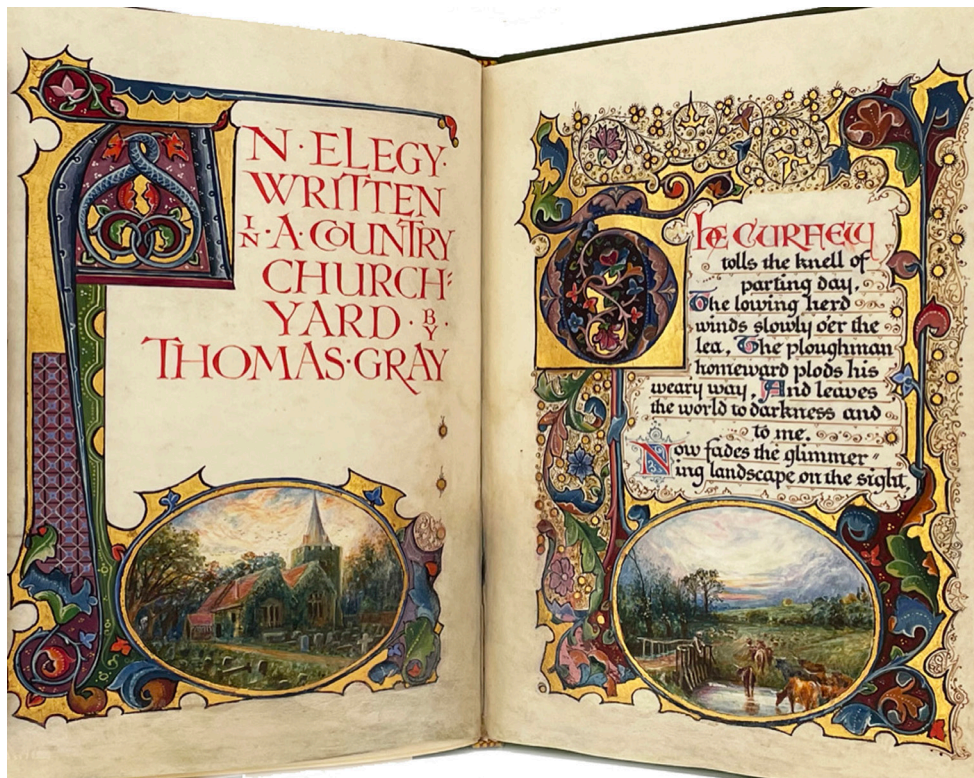 AN · ELEGY ·
WRITTEN
IN · A · COUNTRY
CHURCH-
YARD · BY ·
THOMAS · GRAY
The CURFEW
tolls the knell of
parting day,
The lowing herd
winds slowly o'er the
lea, The ploughman
homeward plods his
weary way, And leaves
the world to darkness and
to me.
Now fades the glimmer"
ing landscape on the sight,